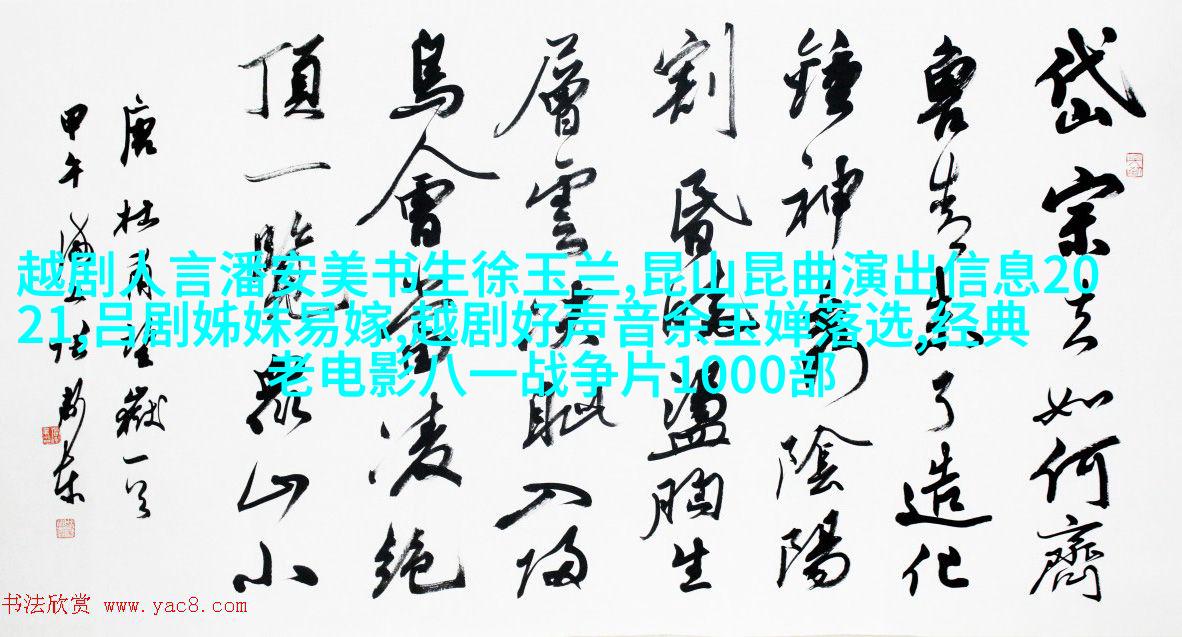 岱宗夫如何齊
魯青未了造化
鍾神秀陰陽
割昏曉盪胸生
層雲決眦入歸
鳥會當凌絕
頂一覽眾山小
唐杜甫望嶽一首
甲午
越剧人言潘安美书生徐玉兰,昆山昆曲演出信息20
21,吕剧姊妹易嫁,越剧好声音余玉婵落选,经典
老电影八一战争片1000部
书法欣赏 www.yac8.com